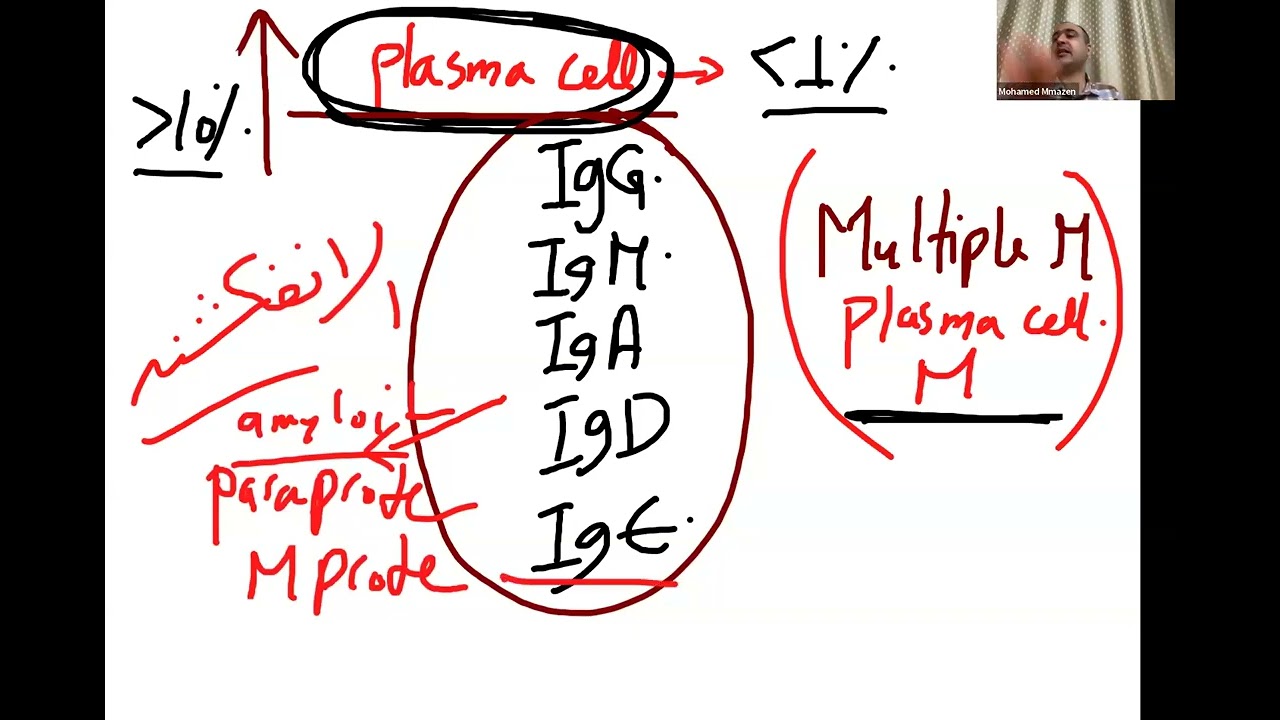 plasma cell → <1%.
>10%.
IgG.
IgM.
IgA
IgD
IgE.
Multiple M
plasma cell.
M
amyloi
paraprote
M prote
Mohamed Mmazen